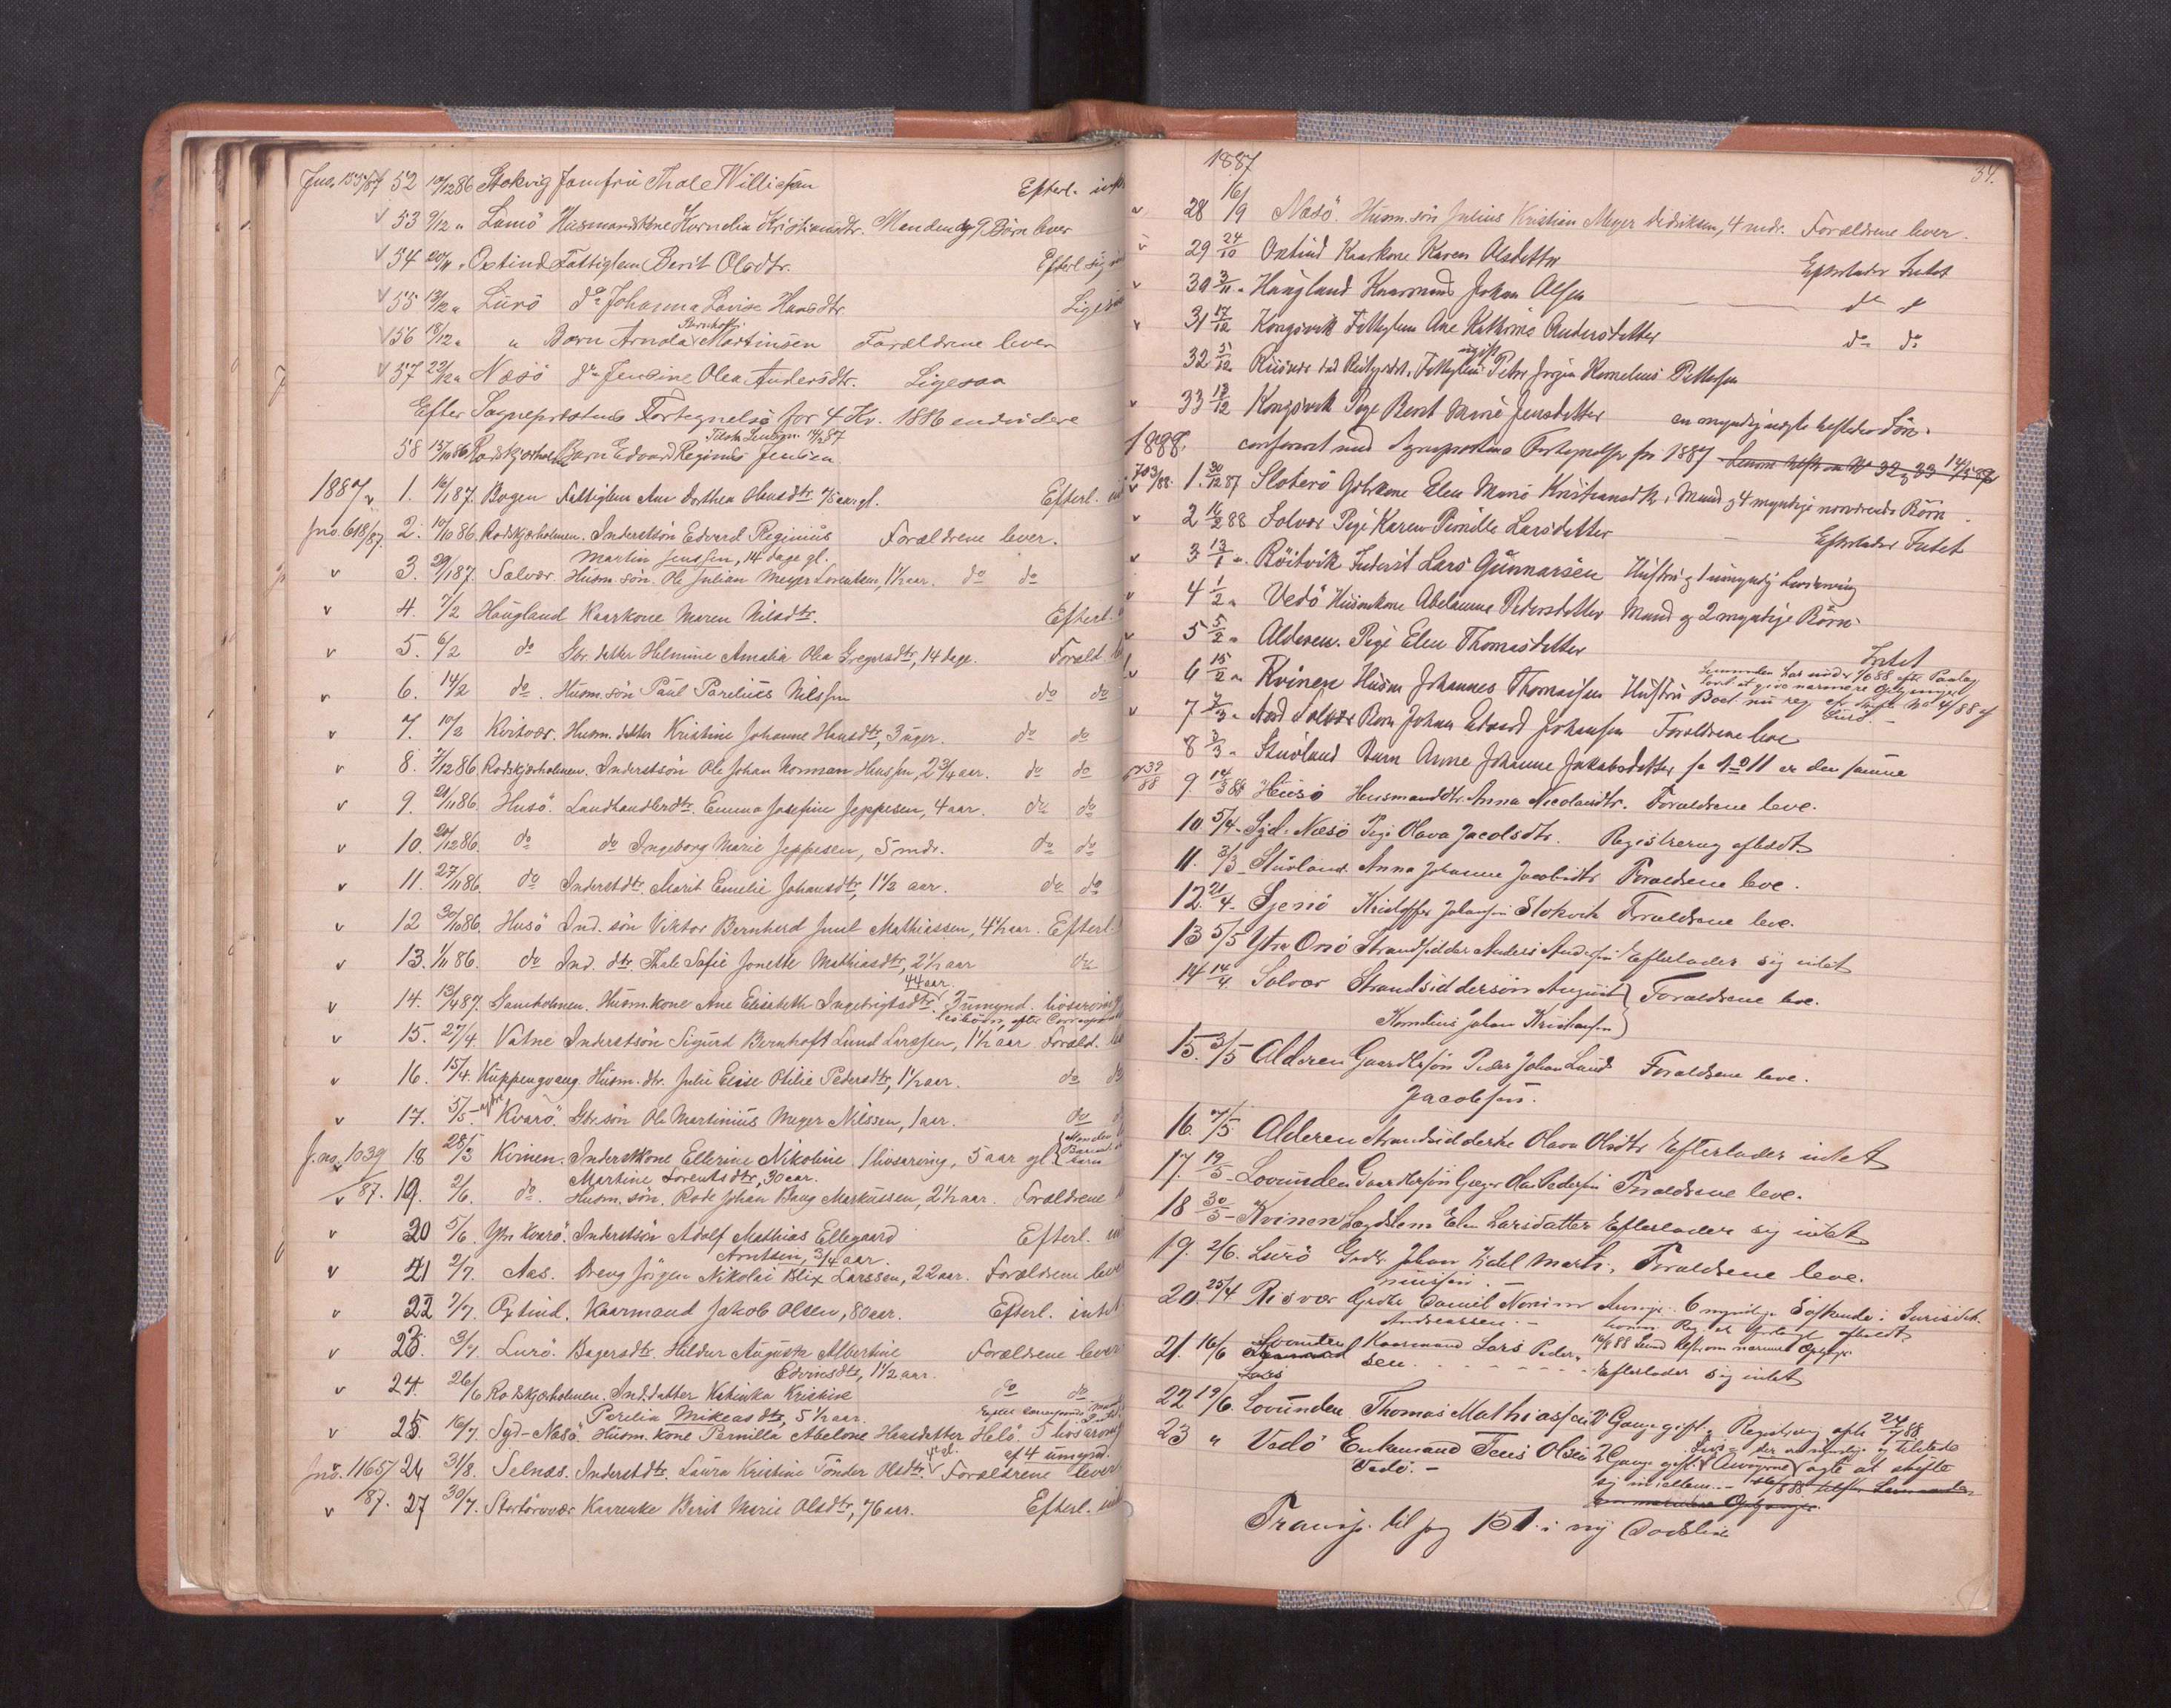 Jno. 155/87 52 10/12 86 Stokvig Jomfru Thale Willissen Efterl. intet
v 53 9/12 " Lurnö Husmandskone Kornelia Kristiansdtr. Manden og 9 Børn lever
v 54 20/11 " Oxtind Fattiglem Berit Olsdtr. Efterl. sig
v 55 13/12 " Lurö do Johanna Lovise Hansdtr. Ligesaa
v 56 18/12 " " Barn Arnola Bernhoft Martinsen Forældrene lever
v 57 22/12 " Næsö do Jensine Olea Andersdtr. Ligesaa
Efter Sogneprestens Fortegnelse for 4 Kv. 1886 endvidere
58 15/10 86 Rodskjærholm Barn Edvard Reginius Jensen
1887 v 1. 16/1 87. Bogen Fattiglem Ane Dorthea Hansdtr 75 aar gl. Efterl.
jno. 618/87. 2. 10/10 86. Rodskjærholmen. Inderstsön Edvard Reginius Forældrene lever.
Martin Jenssen, 14 dage gl.
v 3. 29/1 87. Selvær. Husm. sön. Ole Julian Meyer Lorentsen, 1½ aar. do do
v 4. 7/2 Haugland Kaarkone Maren Nilsdtr. Efterl.
v 5. 6/2 do Gbr. datter Helmine Amalia Olea Gregersdtr, 14 dage. Foræld.
v 6. 14/2 do. Husm. sön Paul Parelius Nilssen do do
v 7. 10/2 Kvitvær. Husm. datter Kristine Johanne Hansdtr, 3 uger. do do
v 8. 7/12 86. Rodskjærholmen. Inderstsön Ole Johan Norman Hanssen, 2¾ aar. do do
v 9. 21/11 86. Husö. Landhandlerdtr. Emma Josefine Jeppesen, 4 aar. do do
v 10. 20/12 86. do do Ingeborg Marie Jeppesen, 5 mdr. do do
v 11. 27/11 86. do Inderstdtr. Marit Emelie Johansdtr, 1½ aar. do do
v 12 30/10 86. Husö Ind. sön Viktor Bernherd Juul Mathiassen, 4½ aar. Efterl.
v 13. 1/11 86. do Ind. dtr. Thale Sofie Jonette Mathiasdtr, 2½ aar do
v 14. 13/4 87. Husm. kone Ane Elisabeth Ingebrigtsdtr. 44 aar. 3 umynd. livsarving
v 15. 27/4. Vatne Inderstsön Sigurd Bernhoft Lund Larssen, 1½ aar Foræld.
v 16. 15/4. Kuppengvaag. Husm. dtr. Julie Elise Otilie Pedersdtr, 1½ aar. do do
v 17. 5/5 - Kvarö. Gbr. sön Ole Martinius Meyer Nilssen, 1 aar. do
J. no. 1039 18 28/3 Kvinen. Inderstkone Ellerine Nikoline 1 livsarving, 5 aar gl.
Martine Lorentsdtr, 30 aar.
/87. 19. 2/6. do. Husm. sön. Rode Johan Baag Markussen, 2½ aar. Forældrene
v 20 5/6. Ytre Kvarö. Inderstsön Adolf Mathias Ellegaard Efterl.
Arntsen, ¾ aar.
v 21 2/7. Aas. Dreng Jörgen Nikolai Blix Larssen, 22 aar. Forældrene lever
v 22 7/7. Oxtind. Kaarmand Jakob Olsen, 80 aar. Efterl. intet
v 23. 3/7. Lurö. Bagersdtr. Hildur Augusta Albertine Forældrene lever
Edvinsdtr, 1½ aar.
v 24. 26/6 Rodskjærholmen. Ind. datter Katinka Kristine do do
Parelia Mikeasdtr, 5½ aar.
v 25. 16/7. Syd-Næsö. Husm. kone Pernilla Abelone Hansdatter Helö. 5 livsarving
af 4 umynd.
jno. 1165/ 26 31/8. Selnæs. Inderstdtr. Laura Kristine Tönder Olsdtr. Forældrene lever
/87. v 27 30/7. Stortorvær Kaarenke Berit Marie Olsdtr, 76 aar. Efterl.
1887 34.
v 28 16/19 Næsö. Husm. sön Julius Kristian Meyer Didriksen, 4 mdr. Forældrene lever.
v 29 24/10 Oxtind Kaarkone Karen Olsdatter Efterlader Intet
v 30 3/11 " Haugland Kaarmand Johan Olsen do do
v 31 17/12 Kongsvik Fattiglem Ane Kathrine Andersdatter do do
32 5/12 Fattiglem ugift Peder Jörgen Kornelius Pettersen
v 33 18/12 Kongsvik Pige Berit Marie Jensdatter en myndig uægte Sön.
1888. confereret med Sogneprestens Fortegnelse for 1887
703/88. 1. 30/12 87 Sloterö Gbrkone Elen Marie Kristiansdtr, Mand og 4 myndige nærværende Börn
v 2 16/2 88 Solvær Pige Karen Pernille Larsdatter Efterlader Intet
v 3 13/1 ". Röitvik Inderst Lars Gunnarsen Hustru og 1 umyndig Livsarving
v 4 1/2 " Vedö Husmkone Abelanne Pedersdatter Mand og 2 myndige Börn
v 5 5/2 " Alderen. Pige Elen Thomasdatter Intet
v 6 15/2 " Kvinen Husm Johannes Thomassen Hustru
v 7 7/3 " Nord Solvær Barn Johan Edvard Johansen Forældrene leve
8 3/3 " Stuvland Barn Anne Johanne Jakobsdatter se No 11 er den samme
39/88 9. 14/3 88 Husö Husmanddtr. Anna Nicolaisdtr. Forældrene leve.
10. 5/4 - Syd. Næsö Pige Olava Jacobsdtr. Registrering afholdt
11. 3/3 - Stuvland. Anna Johanne Jacobsdtr Forældrene leve.
12. 21/4 - Sjenö Kristoffer Johansen Stokvik Forældrene leve.
13 5/5 Ytre Onö Strandsidder Anders Andersen Efterlader sig intet
14 14/4 Solvær Strandsiddersön August } Forældrene leve.
Kornelius Johan Kristiansen }
15. 3/5 Alderen Gaardbrsön Peder Johan Lund Forældrene leve.
Jacobsen.
16. 7/5 Alderen Strandsidderske Olava Olsdtr Efterlader intet
17. 19/5 - Lovunden Gaardbrsön Greger Olai Pedersen Forældrene leve.
18 30/5 - Kvinen Lægdslem Elen Larsdatter Efterlader sig intet
19. 2/6. Lurö Grdbr. Johan Edel Marti- Forældrene leve.
nussen. -
20. 25/4 Risvær Grdbr Daniel Nonim Arvinger: 6 myndige Söskende i Jurisdik.
Andreassen. -
21. 16/6 Lovunden Kaarmand Lars Peder-
sen. - - - Efterlader sig intet
22 19/6. Lovunden Thomas Mathiassen 2 Gange gift. Registrering 24/7 88
23 " Vedö Enkemand Teus Olsen 2 Gange gift.
Vedö. - sig imellem. -
Transp. til pag 151 i ny Dødsliste